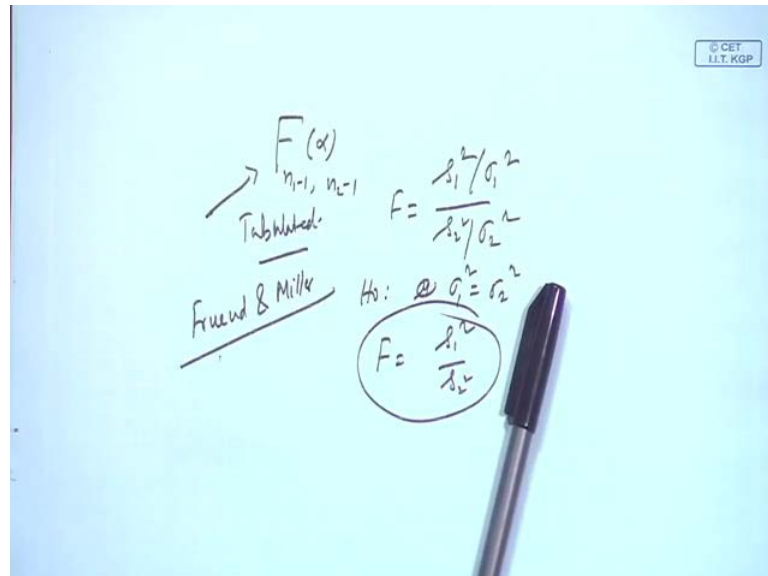 © CET
I.I.T. KGP
F(α)
n₁-1, n₂-1
Tabulated.
Freund & Miller
F = s₁²/σ₁²
s₂²/σ₂²
H₀: σ₁² = σ₂²
F = s₁²
s₂²